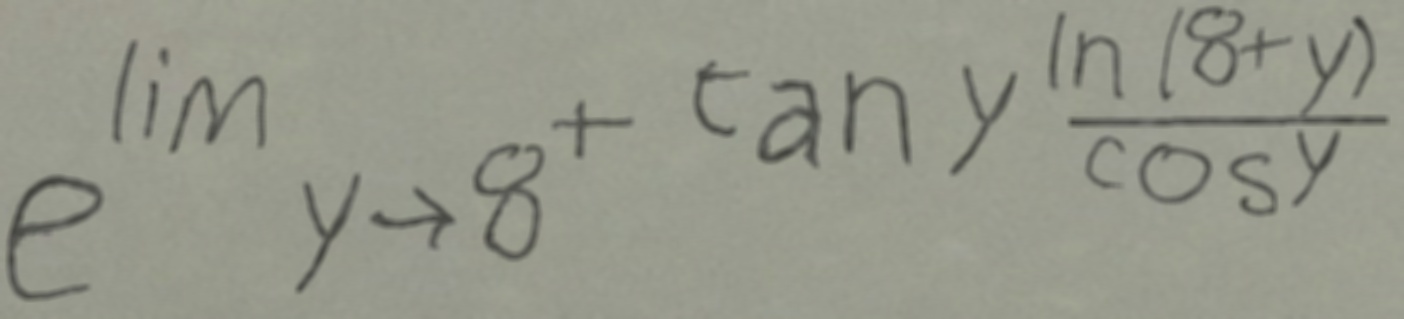 $e^{\lim_{y \to 8^+} \tan y \frac{\ln (8+y)}{\cos y}}$